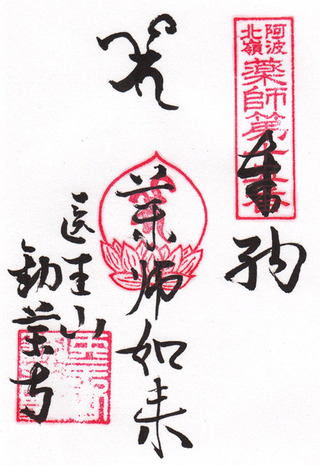 阿波
北嶺
薬師第
奉納
薬師如来
医王山
勧薬寺